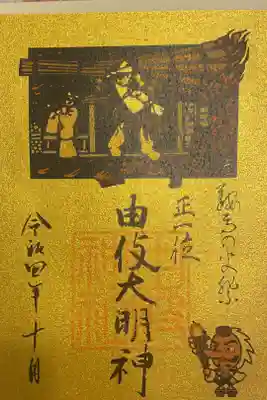 鞍馬の火祭
正一位
由岐大明神
令和四年十月